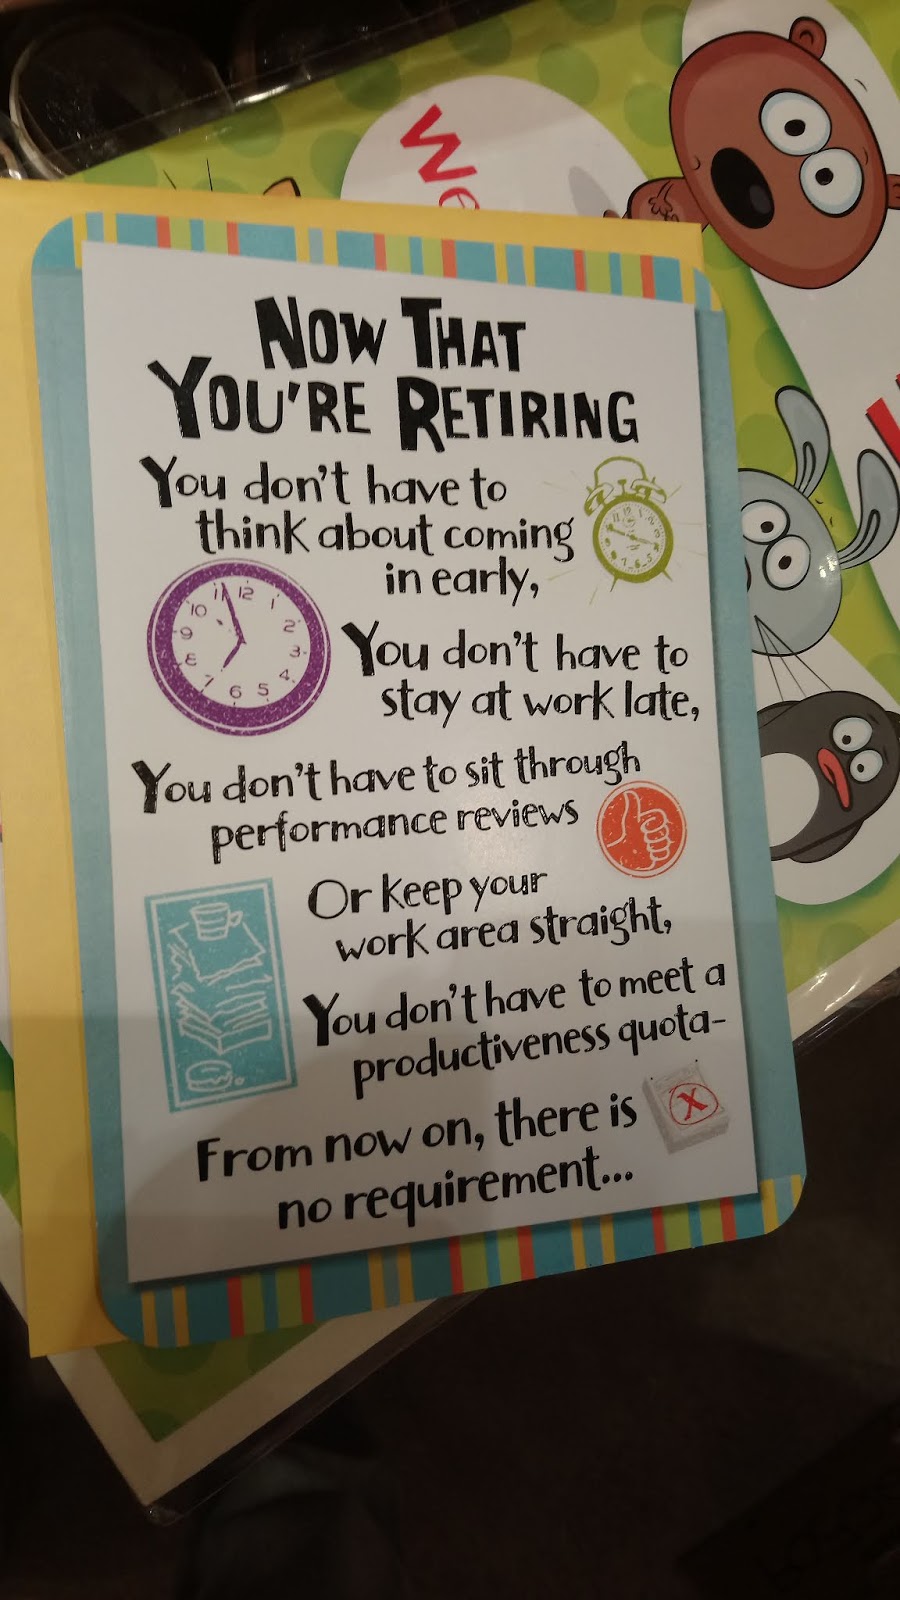 We
NOW THAT
YOU'RE RETIRING
You don't have to
think about coming
in early,
You don't have to
stay at work late,
You don't have to sit through
performance reviews
Or keep your
work area straight,
You don't have to meet a
productiveness quota-
From now on, there is
no requirement...
11 12 1
10 2
9 3
8 4
7 6 5
X